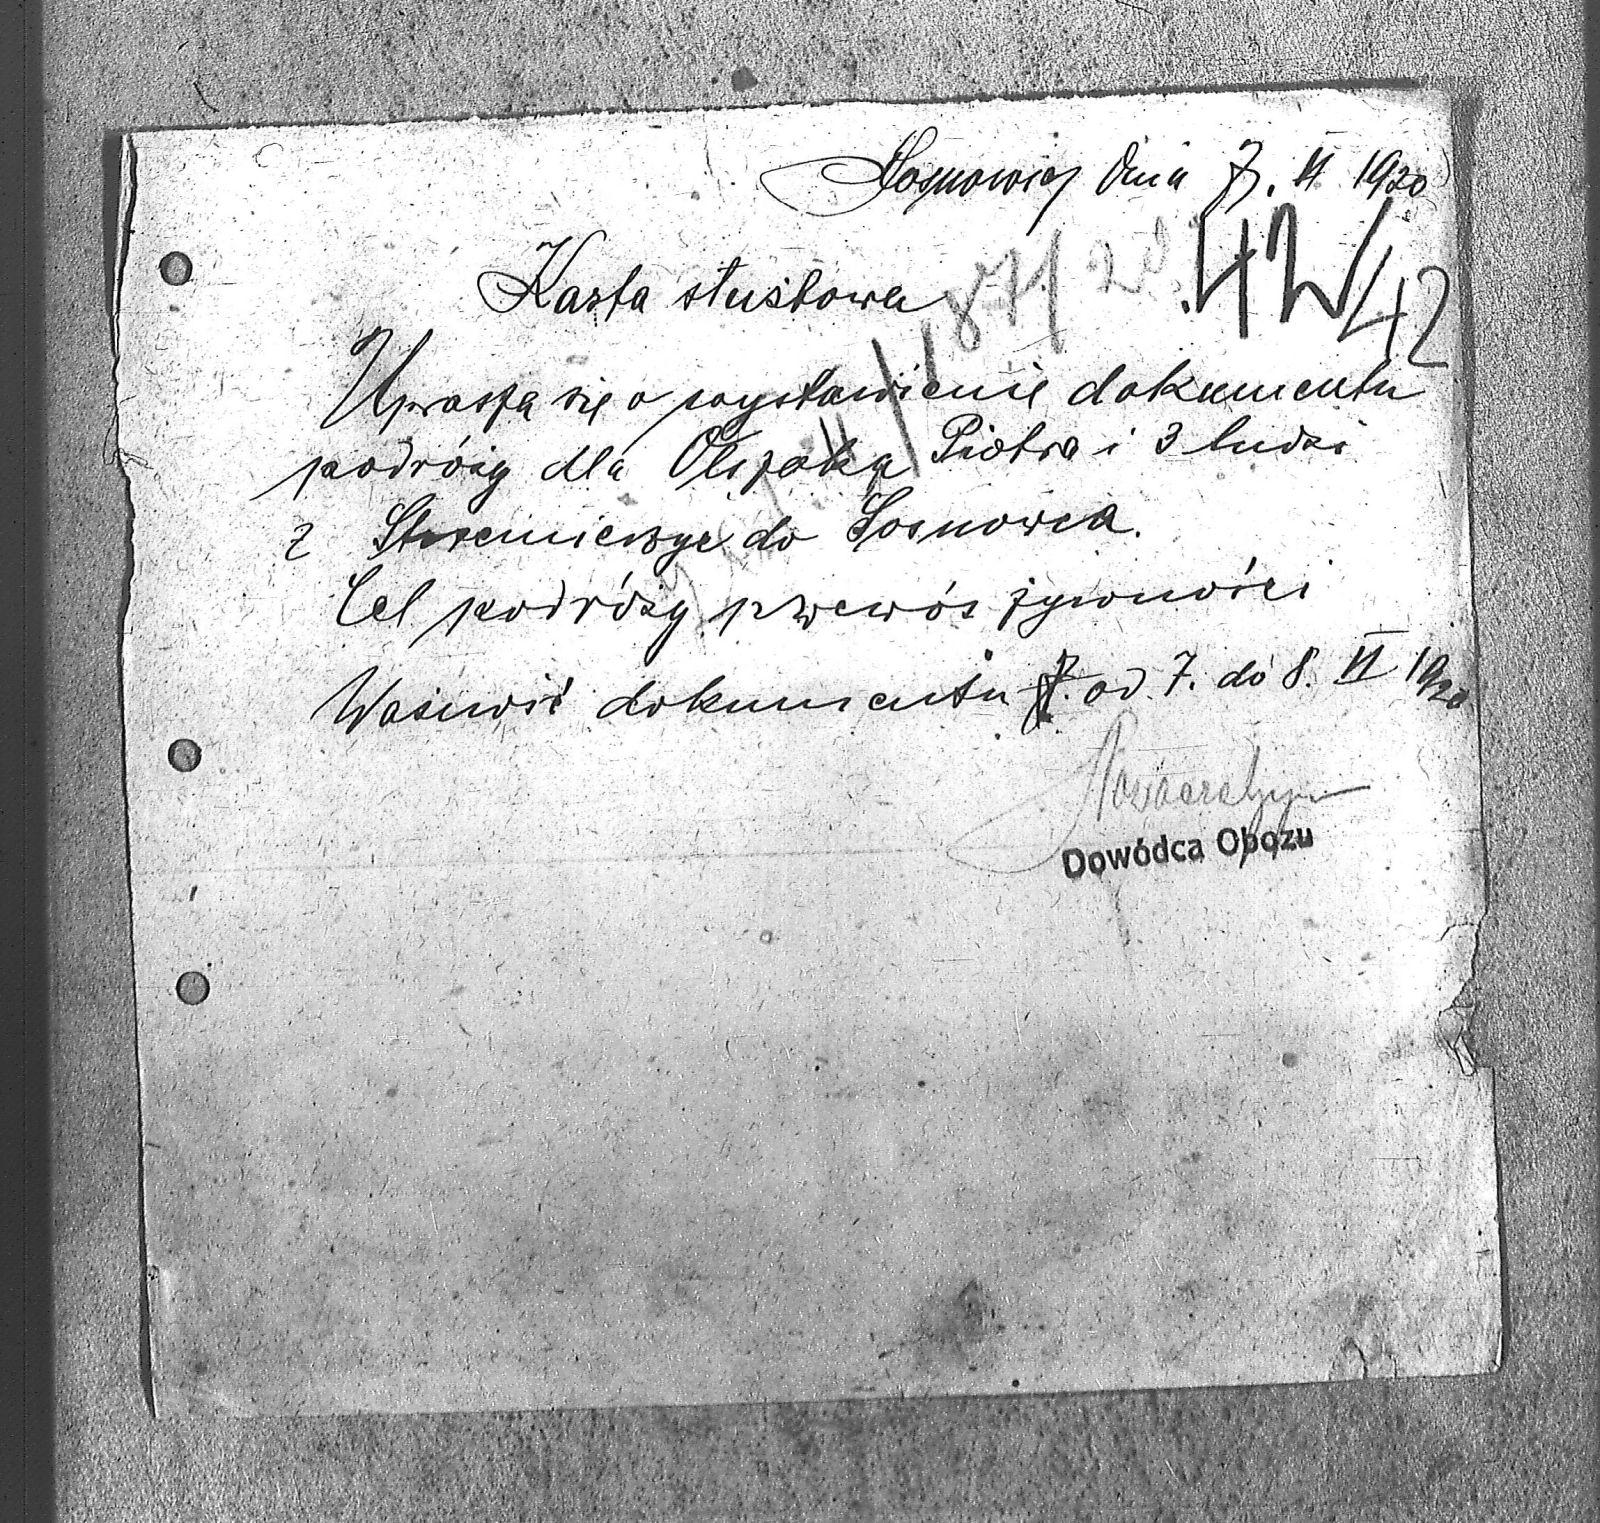 Sosnowice Dnia 7. II 1920
42
42
Karta służbowa
Uprasza się o wystawienie dokumentu
podróży dla Piotra i 3 ludzi
z do Sosnowca.
Cel podróży przewóz żywności
Ważność dokumentu od 7. do 8. II 1920
Dowódca Obozu